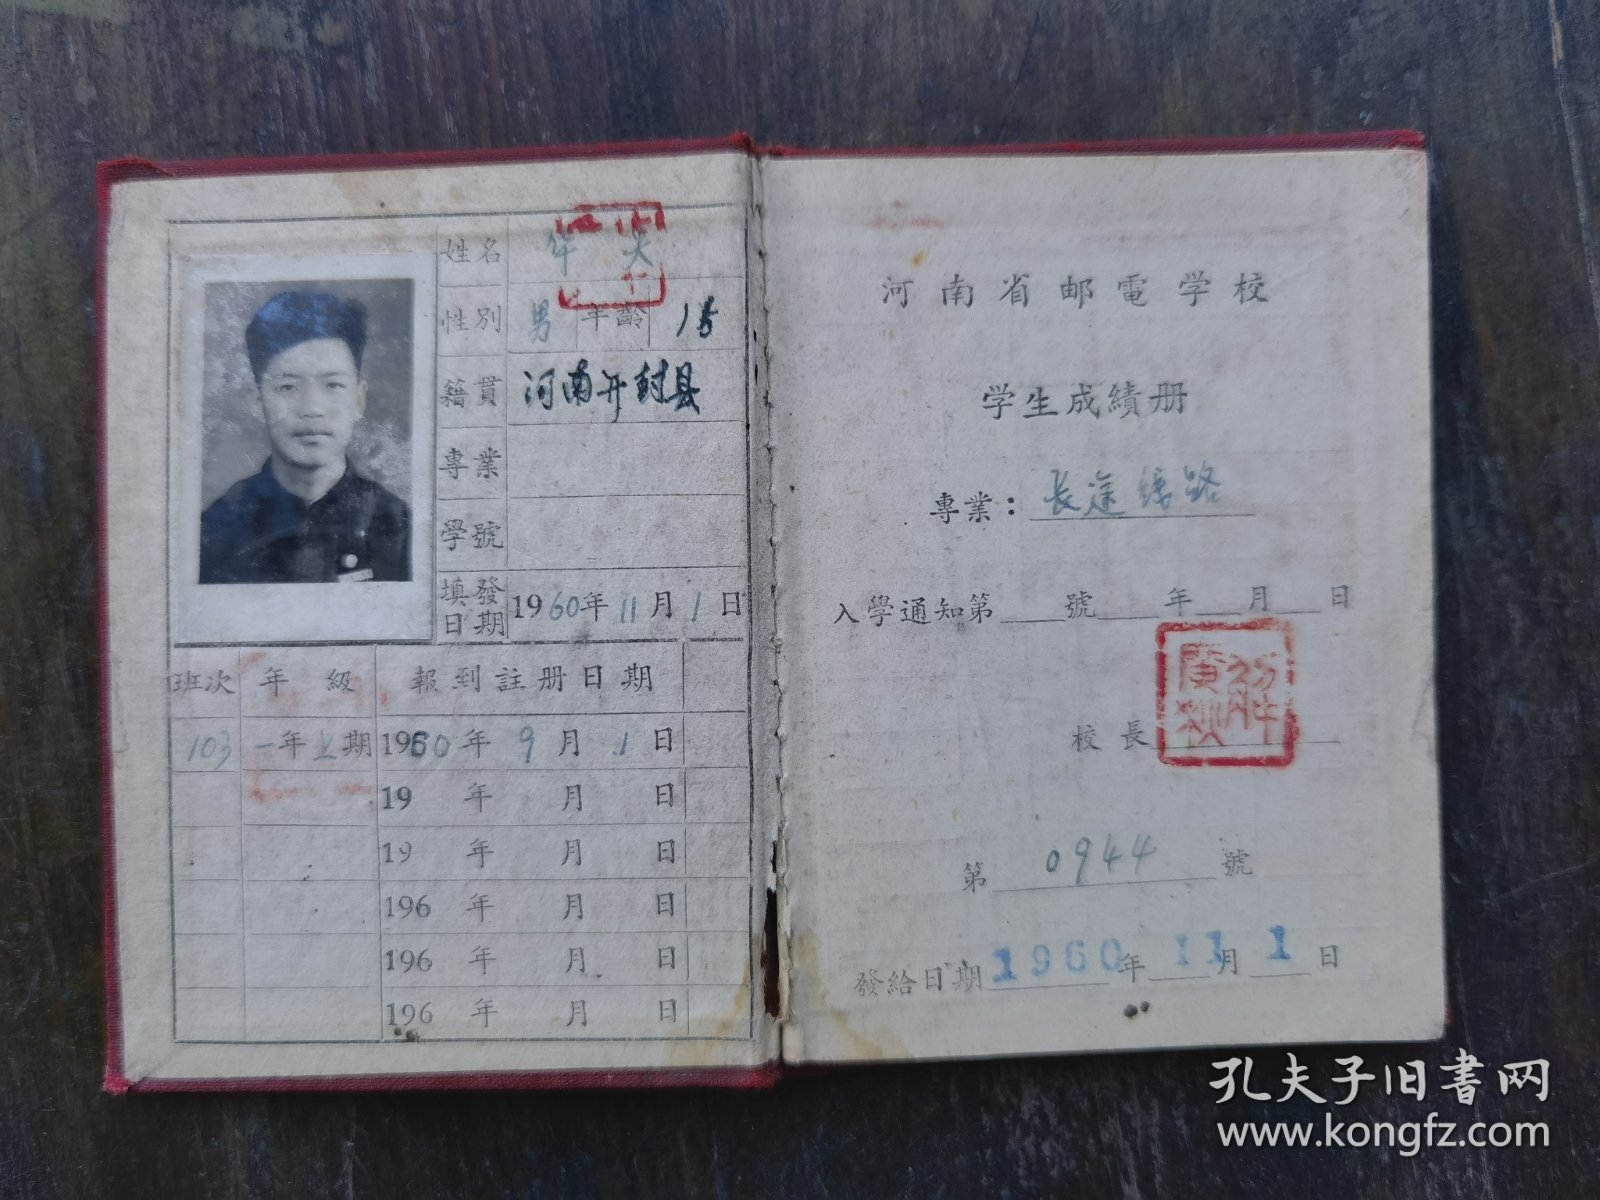 姓名
性別 男 年齡 18
籍貫 河南开封县
專業
学號
填發日期 1960年11月1日
班次 年級 報到註册日期
103 一年上期 1960年9月1日
19 年 月 日
19 年 月 日
196 年 月 日
196 年 月 日
196 年 月 日
河南省邮電学校
学生成績册
專業：长途线路
入學通知第 號 年 月 日
校長
第 0944 號
發給日期 1960年11月1日
孔夫子旧書网
www.kongfz.com